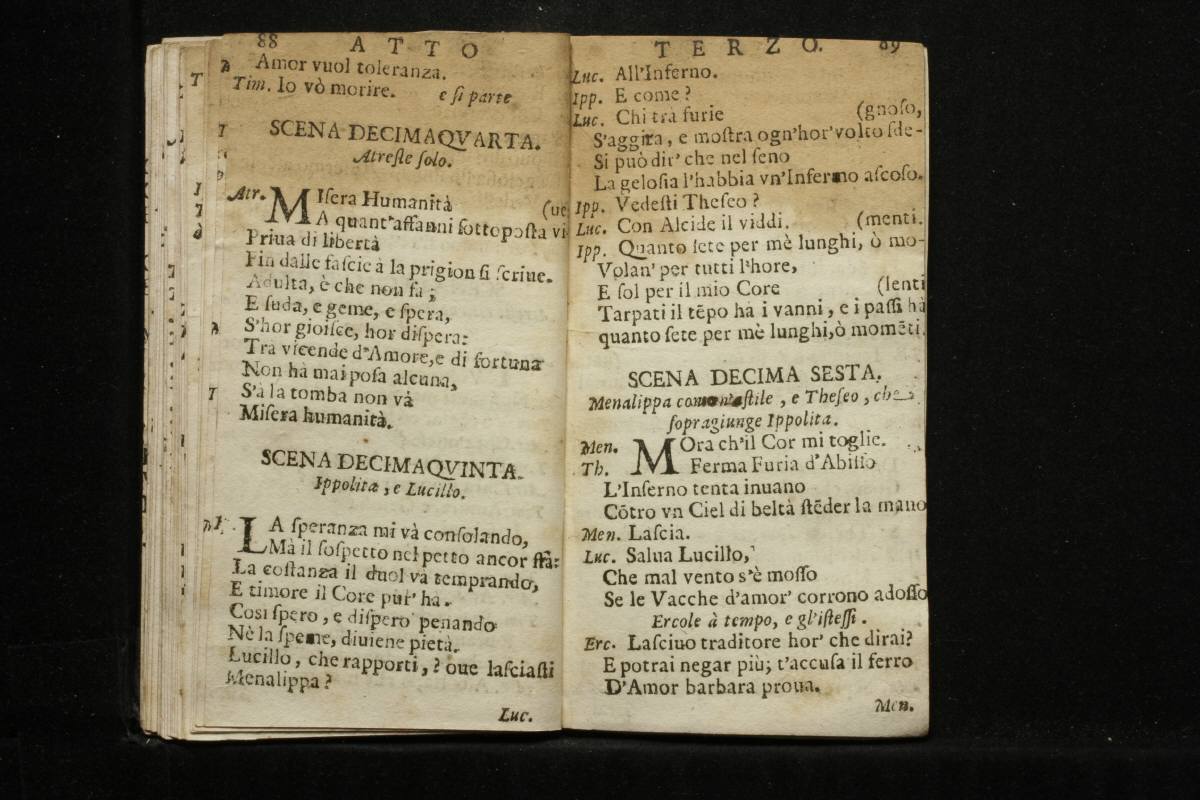 88 ATTO
Amor vuol toleranza.
Tim. Io vò morire. e si parte
SCENA DECIMAQVARTA.
Atreste solo.
Atr. MIsera Humanità (ue
A quant'affanni sottoposta vi
Priua di libertà
Fin dalle fascie à la prigion si scriue.
Adulta, è che non fà;
E suda, e geme, e spera,
S'hor gioisce, hor dispera:
Tra vicende d'Amore, e di fortuna
Non hà mai posa alcuna,
S'à la tomba non và
Misera humanità.
SCENA DECIMAQVINTA.
Ippolita, e Lucillo.
LA speranza mi và consolando,
Mà il sospetto nel petto ancor stà:
La costanza il duol và temprando,
E timore il Core pur' ha.
Cosi spero, e dispero penando
Nè la speme, diuiene pietà.
Lucillo, che rapporti,? oue lasciasti
Menalippa?
Luc.
TERZO. 89
Luc. All'Inferno.
Ipp. E come?
Luc. Chi trà furie (gnoso,
S'aggira, e mostra ogn'hor' volto sde-
Si può dir' che nel seno
La gelosia l'habbia vn'Inferno ascoso.
Ipp. Vedesti Theseo?
Luc. Con Alcide il viddi. (menti.
Ipp. Quanto sete per mè lunghi, ò mo-
Volan' per tutti l'hore,
E sol per il mio Core (lenti
Tarpati il tẽpo hà i vanni, e i passi hà
quanto sete per mè lunghi, ò momẽti.
SCENA DECIMA SESTA.
Menalippa con stile, e Theseo, che
sopragiunge Ippolita.
Men. MOra ch'il Cor mi toglie.
Th. Ferma Furia d'Abisso
L'Inferno tenta inuano
Cõtro vn Ciel di beltà stẽder la mano
Men. Lascia.
Luc. Salua Lucillo,
Che mal vento s'è mosso
Se le Vacche d'amor' corrono adosso
Ercole à tempo, e gl'istessi.
Erc. Lasciuo traditore hor' che dirai?
E potrai negar più; t'accusa il ferro
D'Amor barbara proua.
Men.